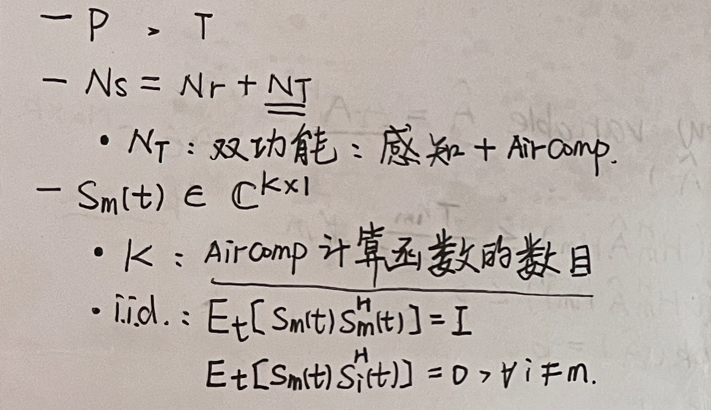 - P, T
- Ns = Nr + NT
• NT: 双功能: 感知 + Aircomp.
- Sm(t) ∈ ℂ^{K×1}
• K: Aircomp 计算函数的数目
• i.i.d.: Et[Sm(t)Sm^H(t)] = I
Et[Sm(t)Si^H(t)] = 0, ∀i≠m.